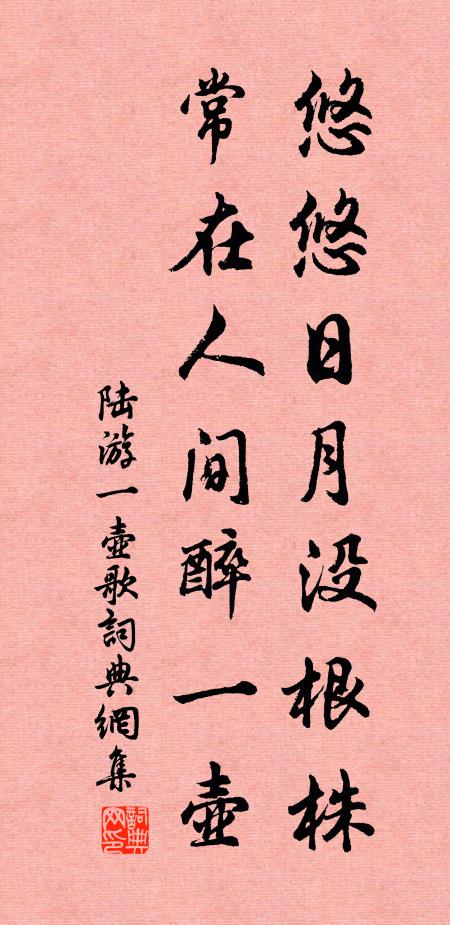 悠悠日月没根株
常在人间醉一壶
陆游一壺歌詞典網集
詞典网印